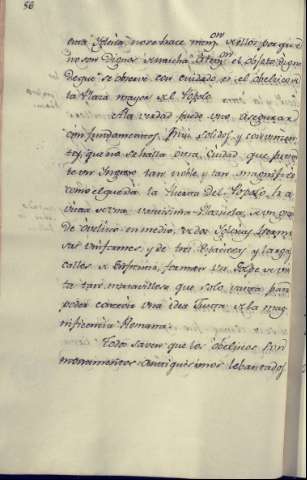 56
esta Iglesia, no se hace men.on xellos, porque
no son dignos x mucha aten.on el objeto digno
de que se observe con cuidado, es el obelisco x
la Plaza mayor xl Popolo.
A la verdad puede uno asegurar
con fundamentos muy solidos, y convenien
tes, que no se halla otra Ciudad que permi
te un Ingreso tan noble, y tan magnifico
como el que dà la Puerta del Popolo, la
vista x una vastissima Plazuela, x un
de ovelisco en medio, x dos Iglesias
uniformes, y de tres espaciosas y largas
calles x forman un Golpe x vis
ta tan maravilloso que solo vasta para
poder concevir una idea Justa x la mag
nificencia Romana.
Todos saven que los obeliscos son
monumentos antiquisimos lebantados